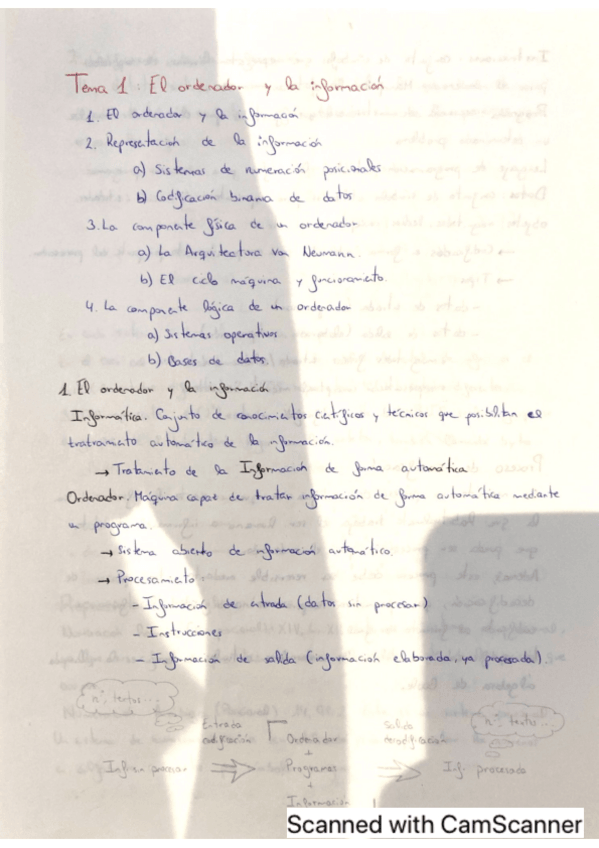 Tema 1: El ordenador y la información
1. El ordenador y la información
2. Representación de la información
a) Sistemas de numeración posicionales
b) Codificación binaria de datos
3. La componente física de un ordenador
a) La Arquitectura von Neumann.
b) El ciclo máquina y funcionamiento.
4. La componente lógica de un ordenador
a) Sistemas operativos
b) Bases de datos.
1. El ordenador y la información
Informática. Conjunto de conocimientos científicos y técnicos que posibilitan el
tratramiento automático de la información.
→ Tratamiento de la Información de forma automática
Ordenador. Máquina capaz de tratar información de forma automática mediante
un programa.
→ Sistema abierto de información automático.
→ Procesamiento:
- Información de entrada (datos sin procesar)
- Instrucciones
- Información de salida (información elaborada, ya procesada).
nº, textos...
Entrada
codificación
Ordenador
Salida
nº, texto...
+
Programas
Inf. procesada
+
Información
Scanned with CamScanner